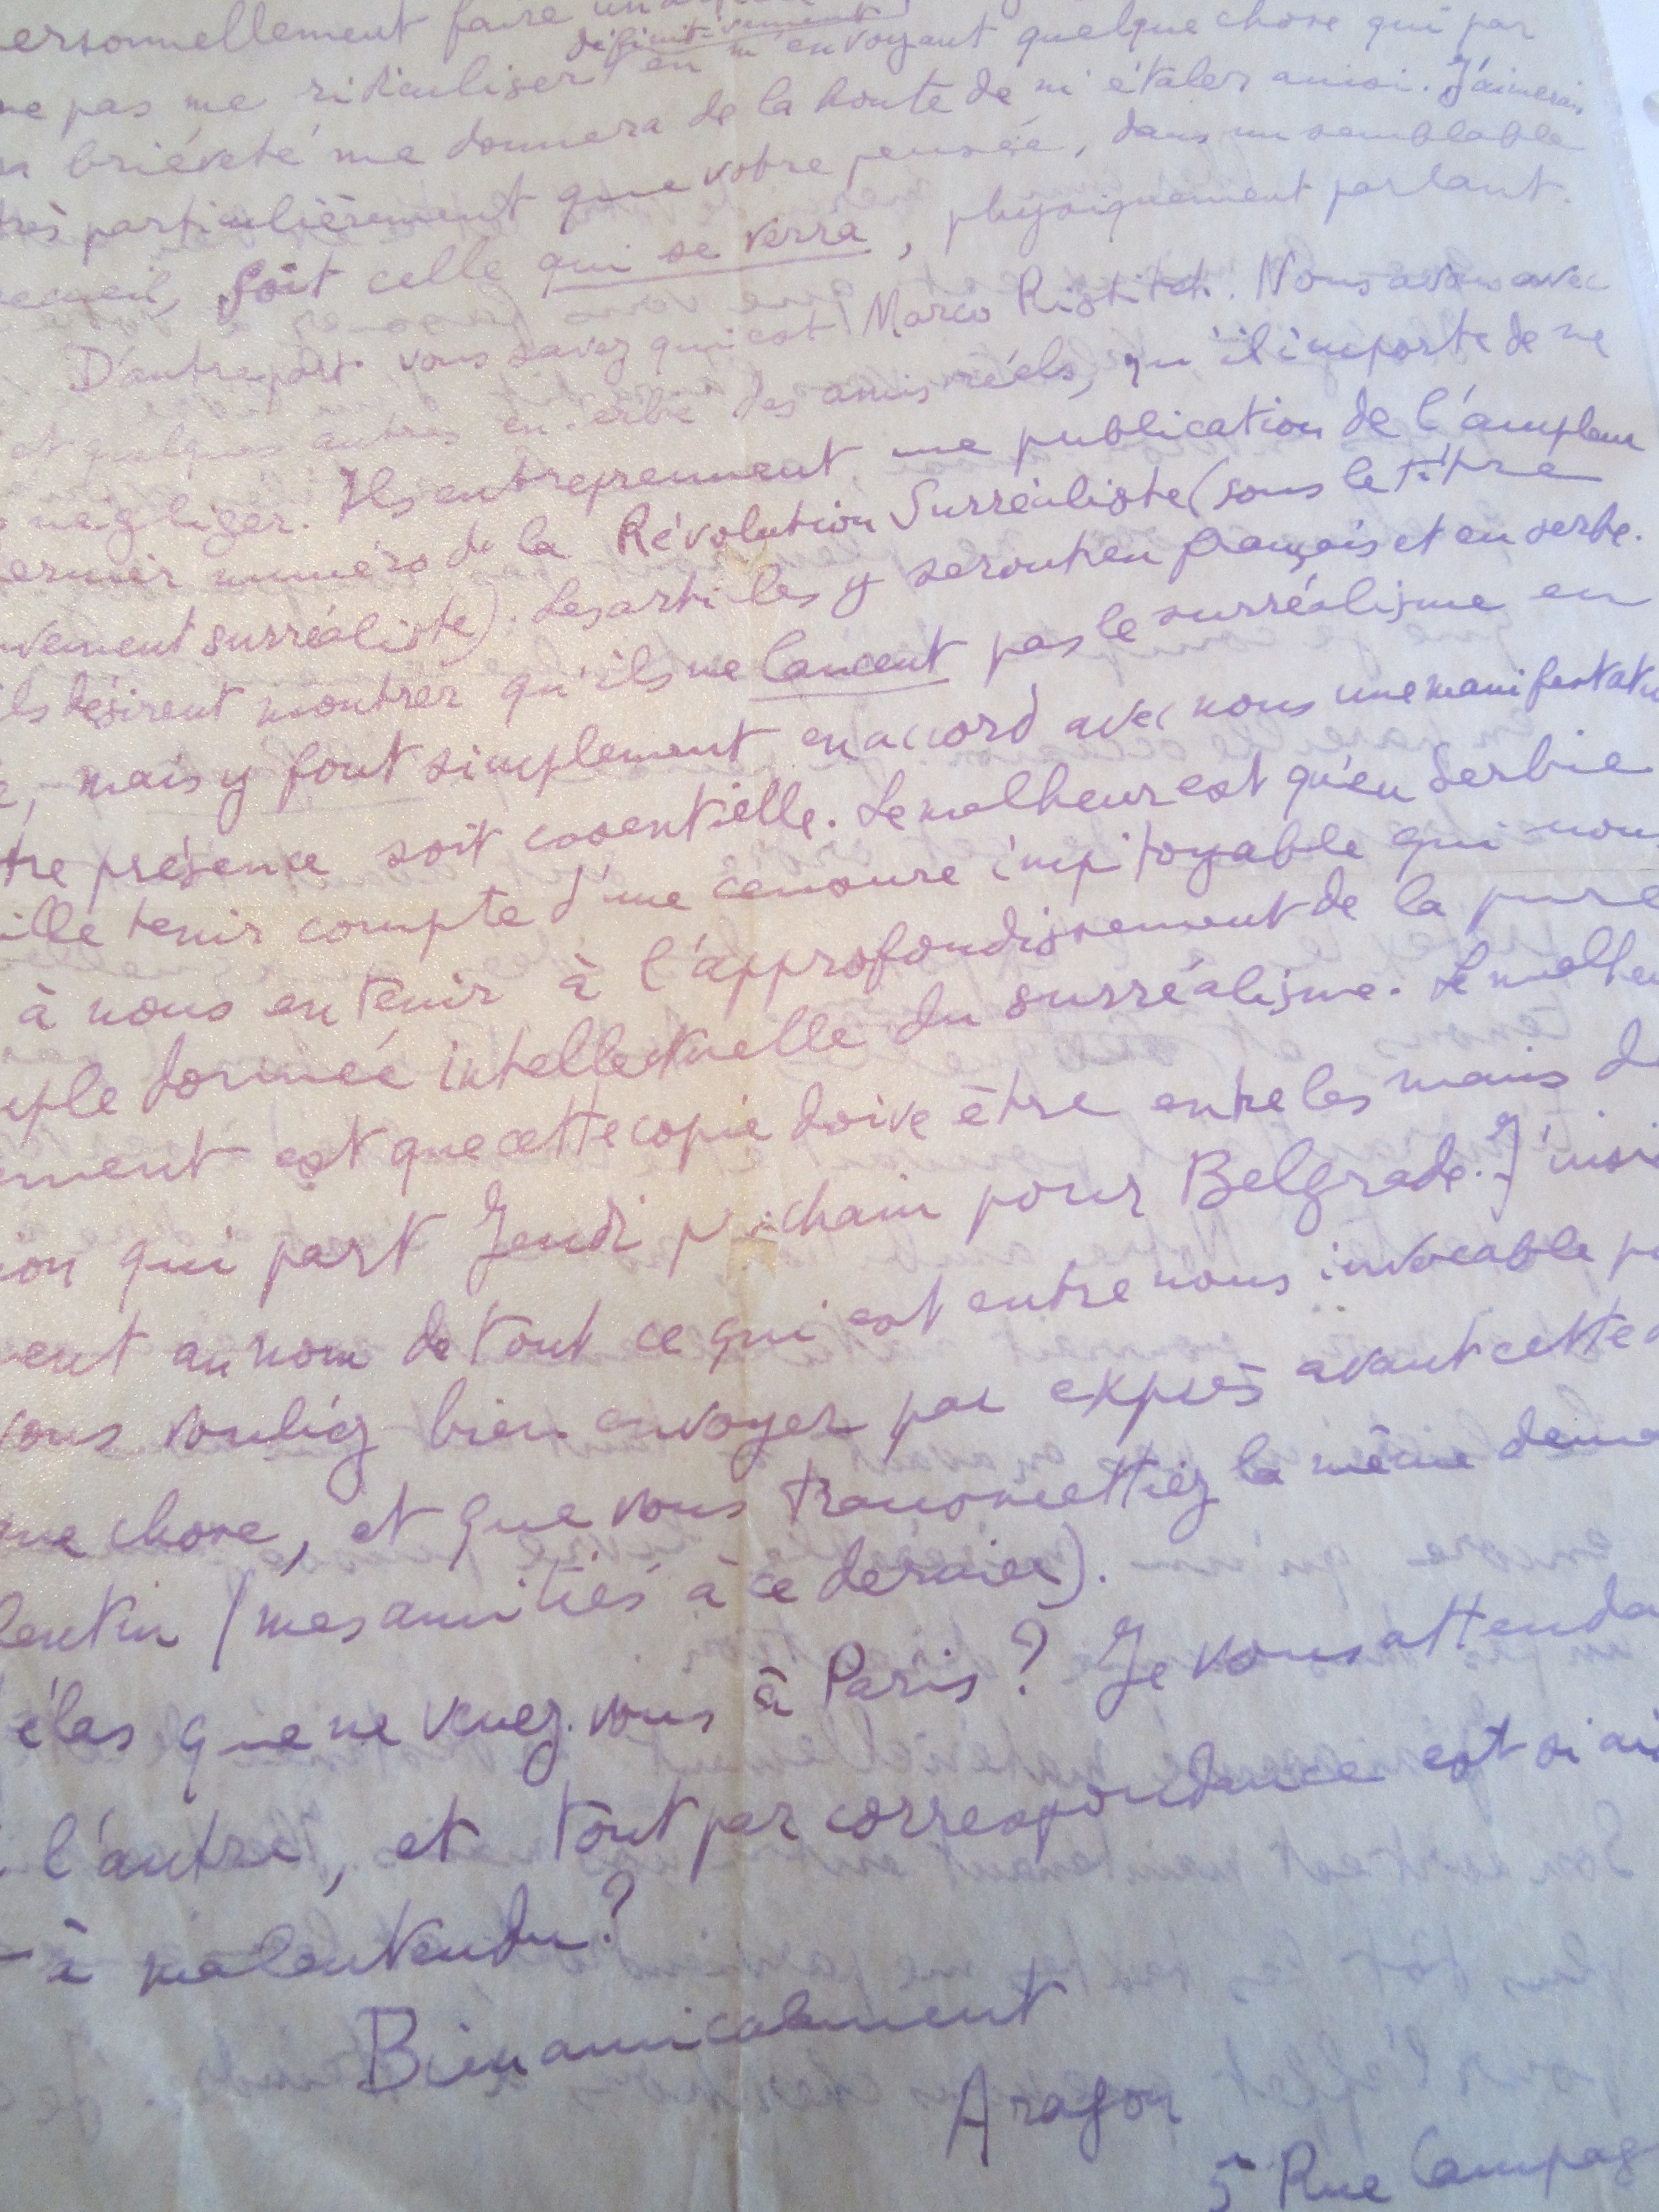 ersonnellement faire un
définitivement
ne pas me ridiculiser en m'envoyant quelque chose qui par
sa brièveté me donnera de la honte de m'étaler ainsi. J'aimerais
très particulièrement que votre pensée, dans un semblable
recueil, soit celle qui se verra, physiquement parlant.
D'autre part vous savez qui est Marco Ristitch. Nous avons avec
et quelques autres en Serbie des amis réels, qu'il importe de ne
négliger. Ils entreprennent une publication de l'ampleur
ernier numéro de la Révolution Surréaliste (sous le titre
uvement surréaliste). Les articles y seront en français et en serbe.
ils désirent montrer qu'ils ne lancent pas le surréalisme en
e, mais y font simplement en accord avec nous une manifestatio
tre présence soit essentielle. Le malheur est qu'en Serbie
ille tenir compte d'une censure impitoyable qui nou
à nous en tenir à l'approfondissement de la pure
mple donnée intellectuelle du surréalisme. Le malheu
ement est que cette copie doive être entre les mains d
ion qui part Jeudi prochain pour Belgrade. J'insis
ent au nom de tout ce qui est entre nous invocable po
vous vouliez bien envoyer par exprès avant cette d
ue chose, et que vous transmettiez la même dema
lentin (mes amitiés à ce dernier).
élas que ne venez-vous à Paris? Je vous attenda
l'autre, et tout par correspondance est si ai
à malentendu?
Bien amicalement
Aragon
5 Rue Campag